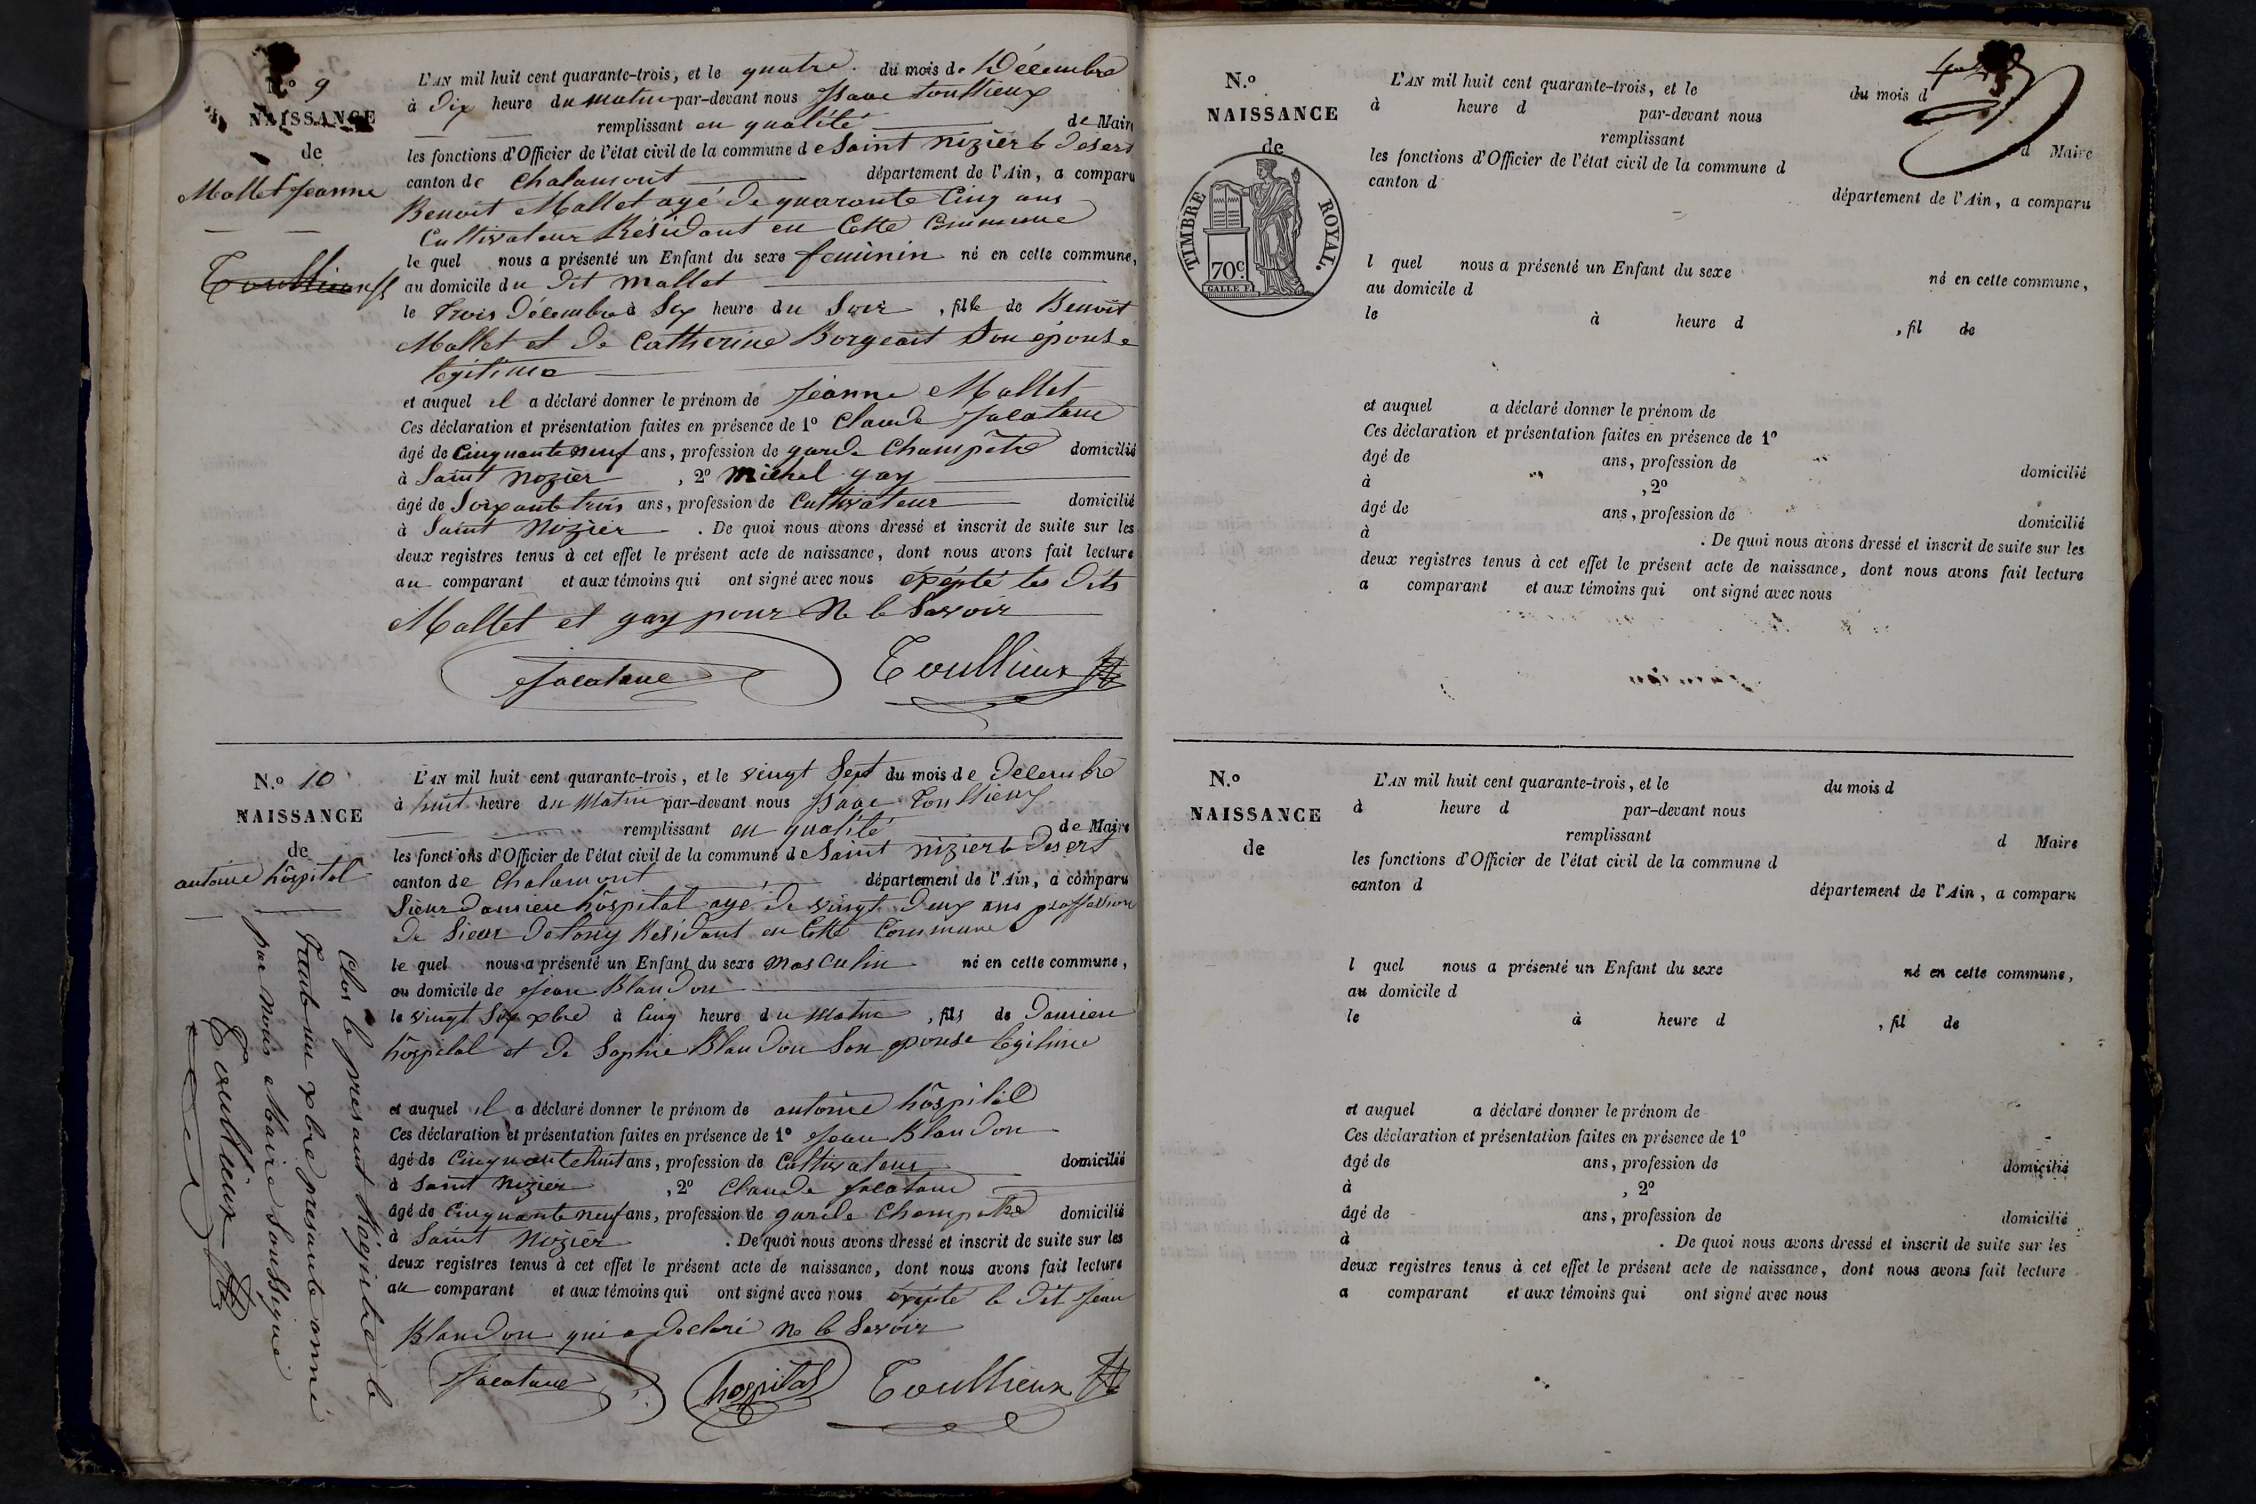 N.o 9
NAISSANCE
de
Mallet Jeanne
Toullieux
L'AN mil huit cent quarante-trois, et le quatre du mois de Décembre
à dix heure du matin par-devant nous Isaac toullieux
remplissant en qualité de Maire
les fonctions d'Officier de l'état civil de la commune de Saint nizier le desert
canton de Chalamont département de l'Ain, a comparu
Benoit Mallet agé de quarante Cinq ans
Cultivateur Résidant en Cette Commune
le quel nous a présenté un Enfant du sexe feminin né en cette commune,
au domicile du dit mallet
le trois Décembre à Six heure du Soir , fille de Benoit
Mallet et de Catherine Borgeait Son épouse
légitime
et auquel il a déclaré donner le prénom de jeanne Mallet
Ces déclaration et présentation faites en présence de 1o Claude Jacatane
âgé de Cinquante neuf ans, profession de garde Champêtre domicilié
à Saint nizier , 2o Michel gay
âgé de Soixante trois ans, profession de Cultivateur domicilié
à Saint Nizier . De quoi nous avons dressé et inscrit de suite sur les
deux registres tenus à cet effet le présent acte de naissance, dont nous avons fait lecture
au comparant et aux témoins qui ont signé avec nous exépté les dits
Mallet et gay pour Ne le Savoir
Jacatane Toullieux
N.o 10
NAISSANCE
de
antoine hôspital
L'AN mil huit cent quarante-trois, et le vingt Sept du mois de Décembre
à huit heure du Matin par-devant nous Isaac Toullieux
remplissant en qualité de Maire
les fonctions d'Officier de l'état civil de la commune de Saint nizier le Desert
canton de Chalamont département de l'Ain, a comparu
Sieur Damien hôspital agé de vingt deux ans proffession
De Sieur De long Résidant en Cette Commune
le quel nous a présenté un Enfant du sexe Masculin né en cette commune,
au domicile de Jean Blandon
le vingt Six xbre à Cinq heure du Matin , fils de Damien
hôspital et de Sophie Blandon Son eponse légitime
et auquel il a déclaré donner le prénom de antoine hôspital
Ces déclaration et présentation faites en présence de 1o Jean Blandon
âgé de Cinquante huit ans, profession de Cultivateur domicilié
à Saint Nizier , 2o Claude Jacatane
âgé de Cinquante neuf ans, profession de garde Champêtre domicilié
à Saint Nizier . De quoi nous avons dressé et inscrit de suite sur les
deux registres tenus à cet effet le présent acte de naissance, dont nous avons fait lecture
au comparant et aux témoins qui ont signé avec nous exépté le dit Jean
Blandon qui a déclaré Ne le Savoir
Jacatane hospital Toullieux
Clos le présant Régistre le
Trante un xbre présante année
par Nous Maire Soussigné
Toullieux
N.o
NAISSANCE
de
TIMBRE ROYAL.
70c.
GALLE F.
L'AN mil huit cent quarante-trois, et le du mois d
à heure d par-devant nous
remplissant d Maire
les fonctions d'Officier de l'état civil de la commune d
canton d département de l'Ain, a comparu
l quel nous a présenté un Enfant du sexe né en cette commune,
au domicile d
le à heure d , fil de
et auquel a déclaré donner le prénom de
Ces déclaration et présentation faites en présence de 1o
âgé de ans, profession de domicilié
à , 2o
âgé de ans, profession de domicilié
à . De quoi nous avons dressé et inscrit de suite sur les
deux registres tenus à cet effet le présent acte de naissance, dont nous avons fait lecture
a comparant et aux témoins qui ont signé avec nous
N.o
NAISSANCE
de
L'AN mil huit cent quarante-trois, et le du mois d
à heure d par-devant nous
remplissant d Maire
les fonctions d'Officier de l'état civil de la commune d
canton d département de l'Ain, a comparu
l quel nous a présenté un Enfant du sexe né en cette commune,
au domicile d
le à heure d , fil de
et auquel a déclaré donner le prénom de
Ces déclaration et présentation faites en présence de 1o
âgé de ans, profession de domicilié
à , 2o
âgé de ans, profession de domicilié
à . De quoi nous avons dressé et inscrit de suite sur les
deux registres tenus à cet effet le présent acte de naissance, dont nous avons fait lecture
a comparant et aux témoins qui ont signé avec nous